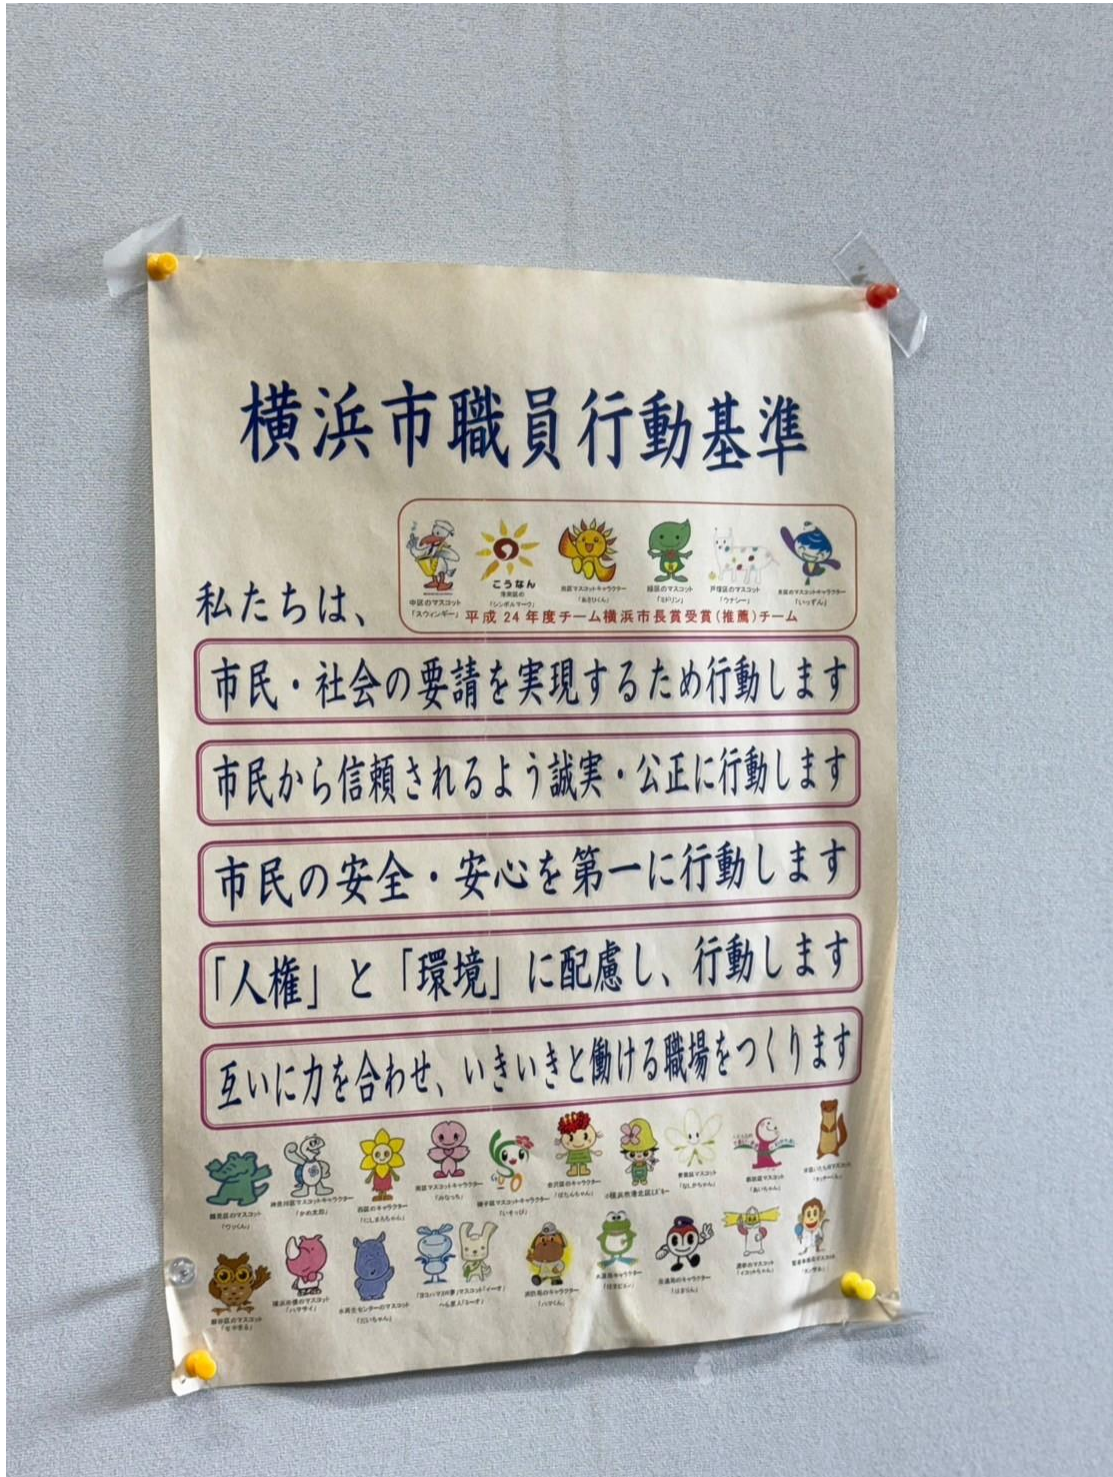 横浜市職員行動基準
私たちは、
中区のマスコット
「スウィンギー」
こうなん
港南区の
「シンボルマーク」
旭区マスコットキャラクター
「あさひくん」
緑区のマスコット
「ミドリン」
戸塚区のマスコット
「ウナシー」
泉区のマスコットキャラクター
「いっずん」
平成24年度チーム横浜市長賞受賞(推薦)チーム
市民・社会の要請を実現するため行動します
市民から信頼されるよう誠実・公正に行動します
市民の安全・安心を第一に行動します
「人権」と「環境」に配慮し、行動します
互いに力を合わせ、いきいきと働ける職場をつくります
鶴見区のマスコット
「ワッくん」
神奈川区マスコットキャラクター
「かめ太郎」
西区のキャラクター
「にしまろちゃん」
南区マスコットキャラクター
「みなっち」
磯子区マスコットキャラクター
「いそっぴ」
金沢区のキャラクター
「ぼたんちゃん」
©横浜市港北区ミズキー
青葉区マスコット
「なしかちゃん」
都筑区のマスコット
「あいちゃん」
「タッチーくん」
瀬谷区のマスコット
「せやまる」
横浜市債のマスコット
「ハマサイ」
水再生センターのマスコット
「だいちゃん」
「ヨコハマ3R夢」マスコット「イーオ」
へら星人「ミーオ」
消防局のキャラクター
「ハマくん」
水道局キャラクター
「はまピョン」
交通局のキャラクター
「はまりん」
選挙のマスコット
「イコットちゃん」